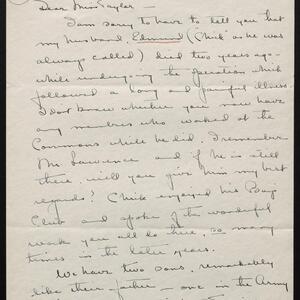 Dear Miss Taylor -
I am sorry to have to tell you that
my husband, Edmund ("Chick" as he was
always called) died two years ago -
while undergoing the operation which
followed a long and painful illness.
I don't know whether you now have
any members who worked at the
Commons while he did. I remember
Mr. Lawrence and if he is still
there, will you give him my best
regards? Chick enjoyed his Boys
Club and spoke of the wonderful
work you all do here, so many
times in the later years.
We have two sons, remarkably
like their father - one in the Army